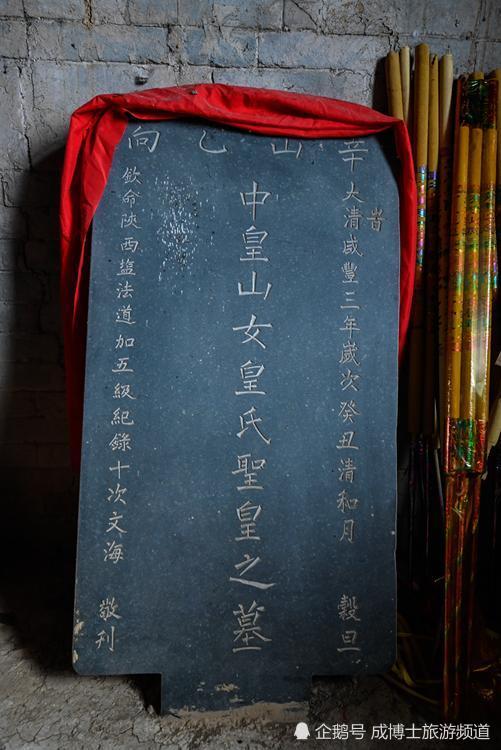 辛山乙向
旹大清咸豐三年歲次癸丑清和月 穀旦
中皇山女皇氏聖皇之墓
欽命陝西盐法道加五級紀錄十次文海 敬刊
企鹅号 成博士旅游频道